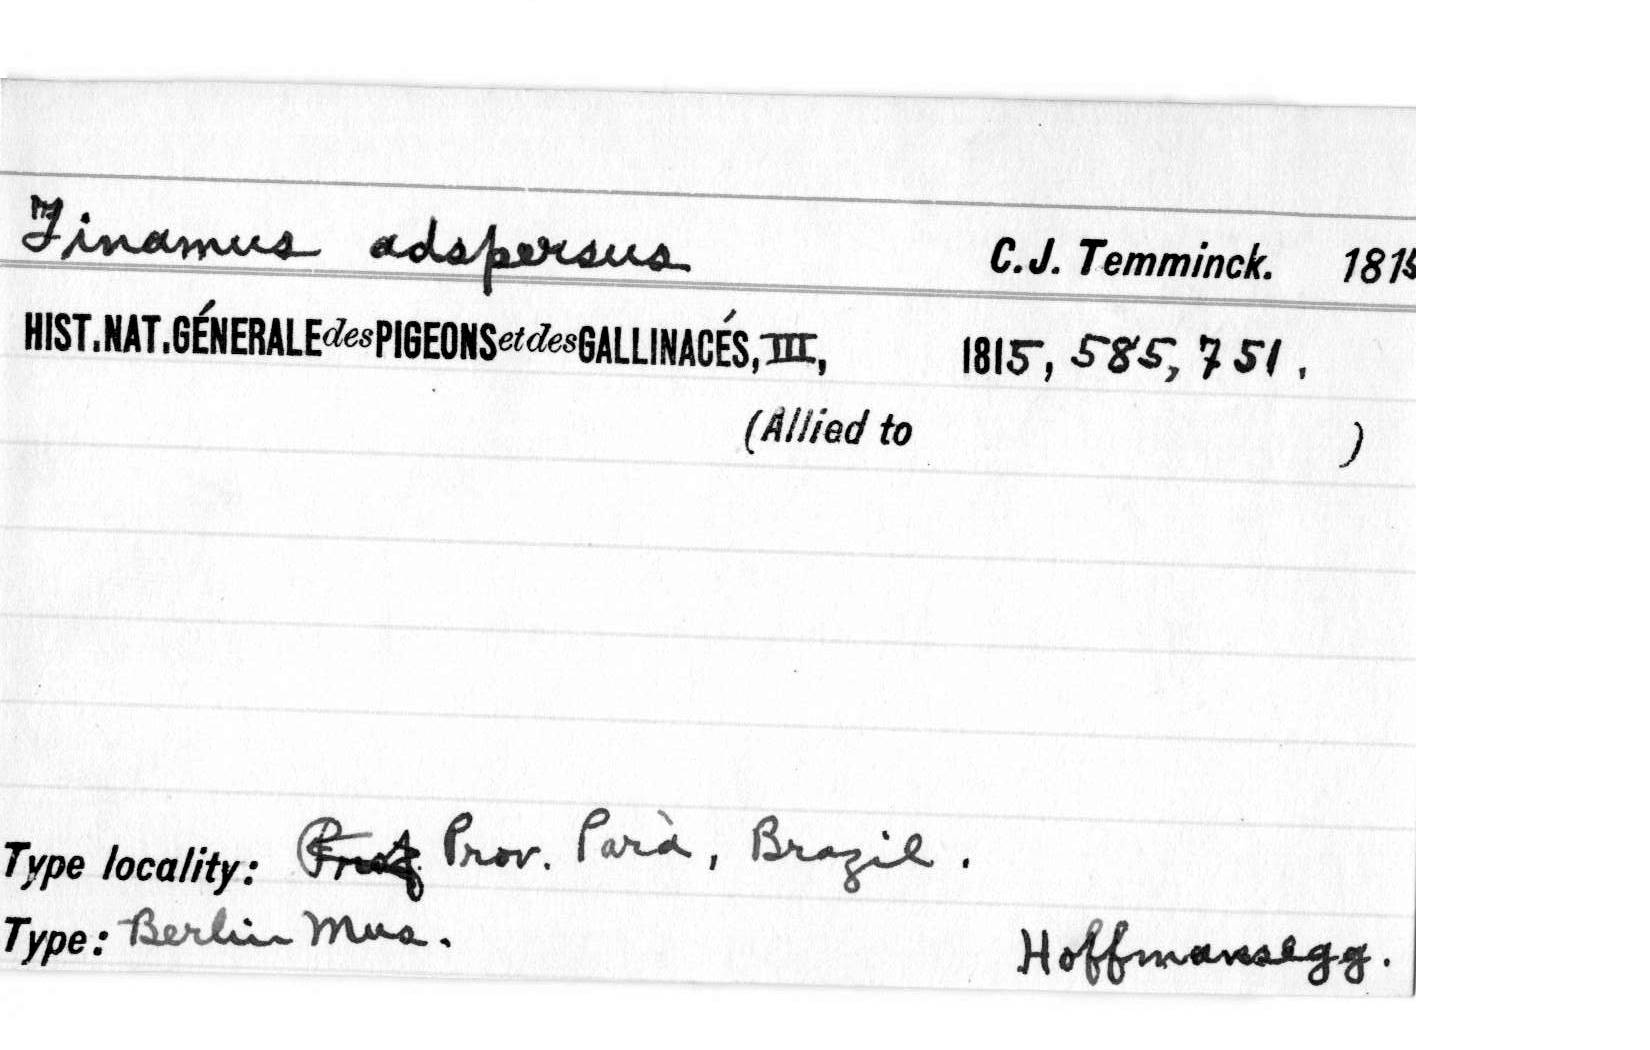 Tinamus adspersus C.J. Temminck. 1815
HIST.NAT.GÉNERALE des PIGEONS et des GALLINACÉS, III, 1815, 585, 751.
(Allied to )
Type locality: Prov. Parà, Brazil.
Type: Berlin Mus. Hoffmansegg.